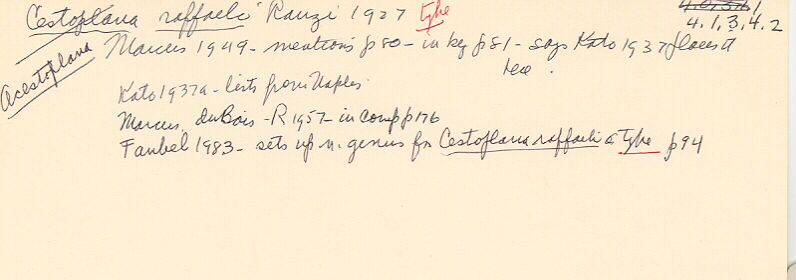 Cestoplana raffaeli Ranzi 1927 type
4.1,3,4.2
Acestoplana
Marcus 1949 - mentions p80 - in key p81 - says Kato 1937 places it
here.
Kato 1937a - lists from Naples.
Marcus, duBois-R 1957 - in comp p176
Faubel 1983 - sets up n. genus for Cestoplana raffaeli as type p94